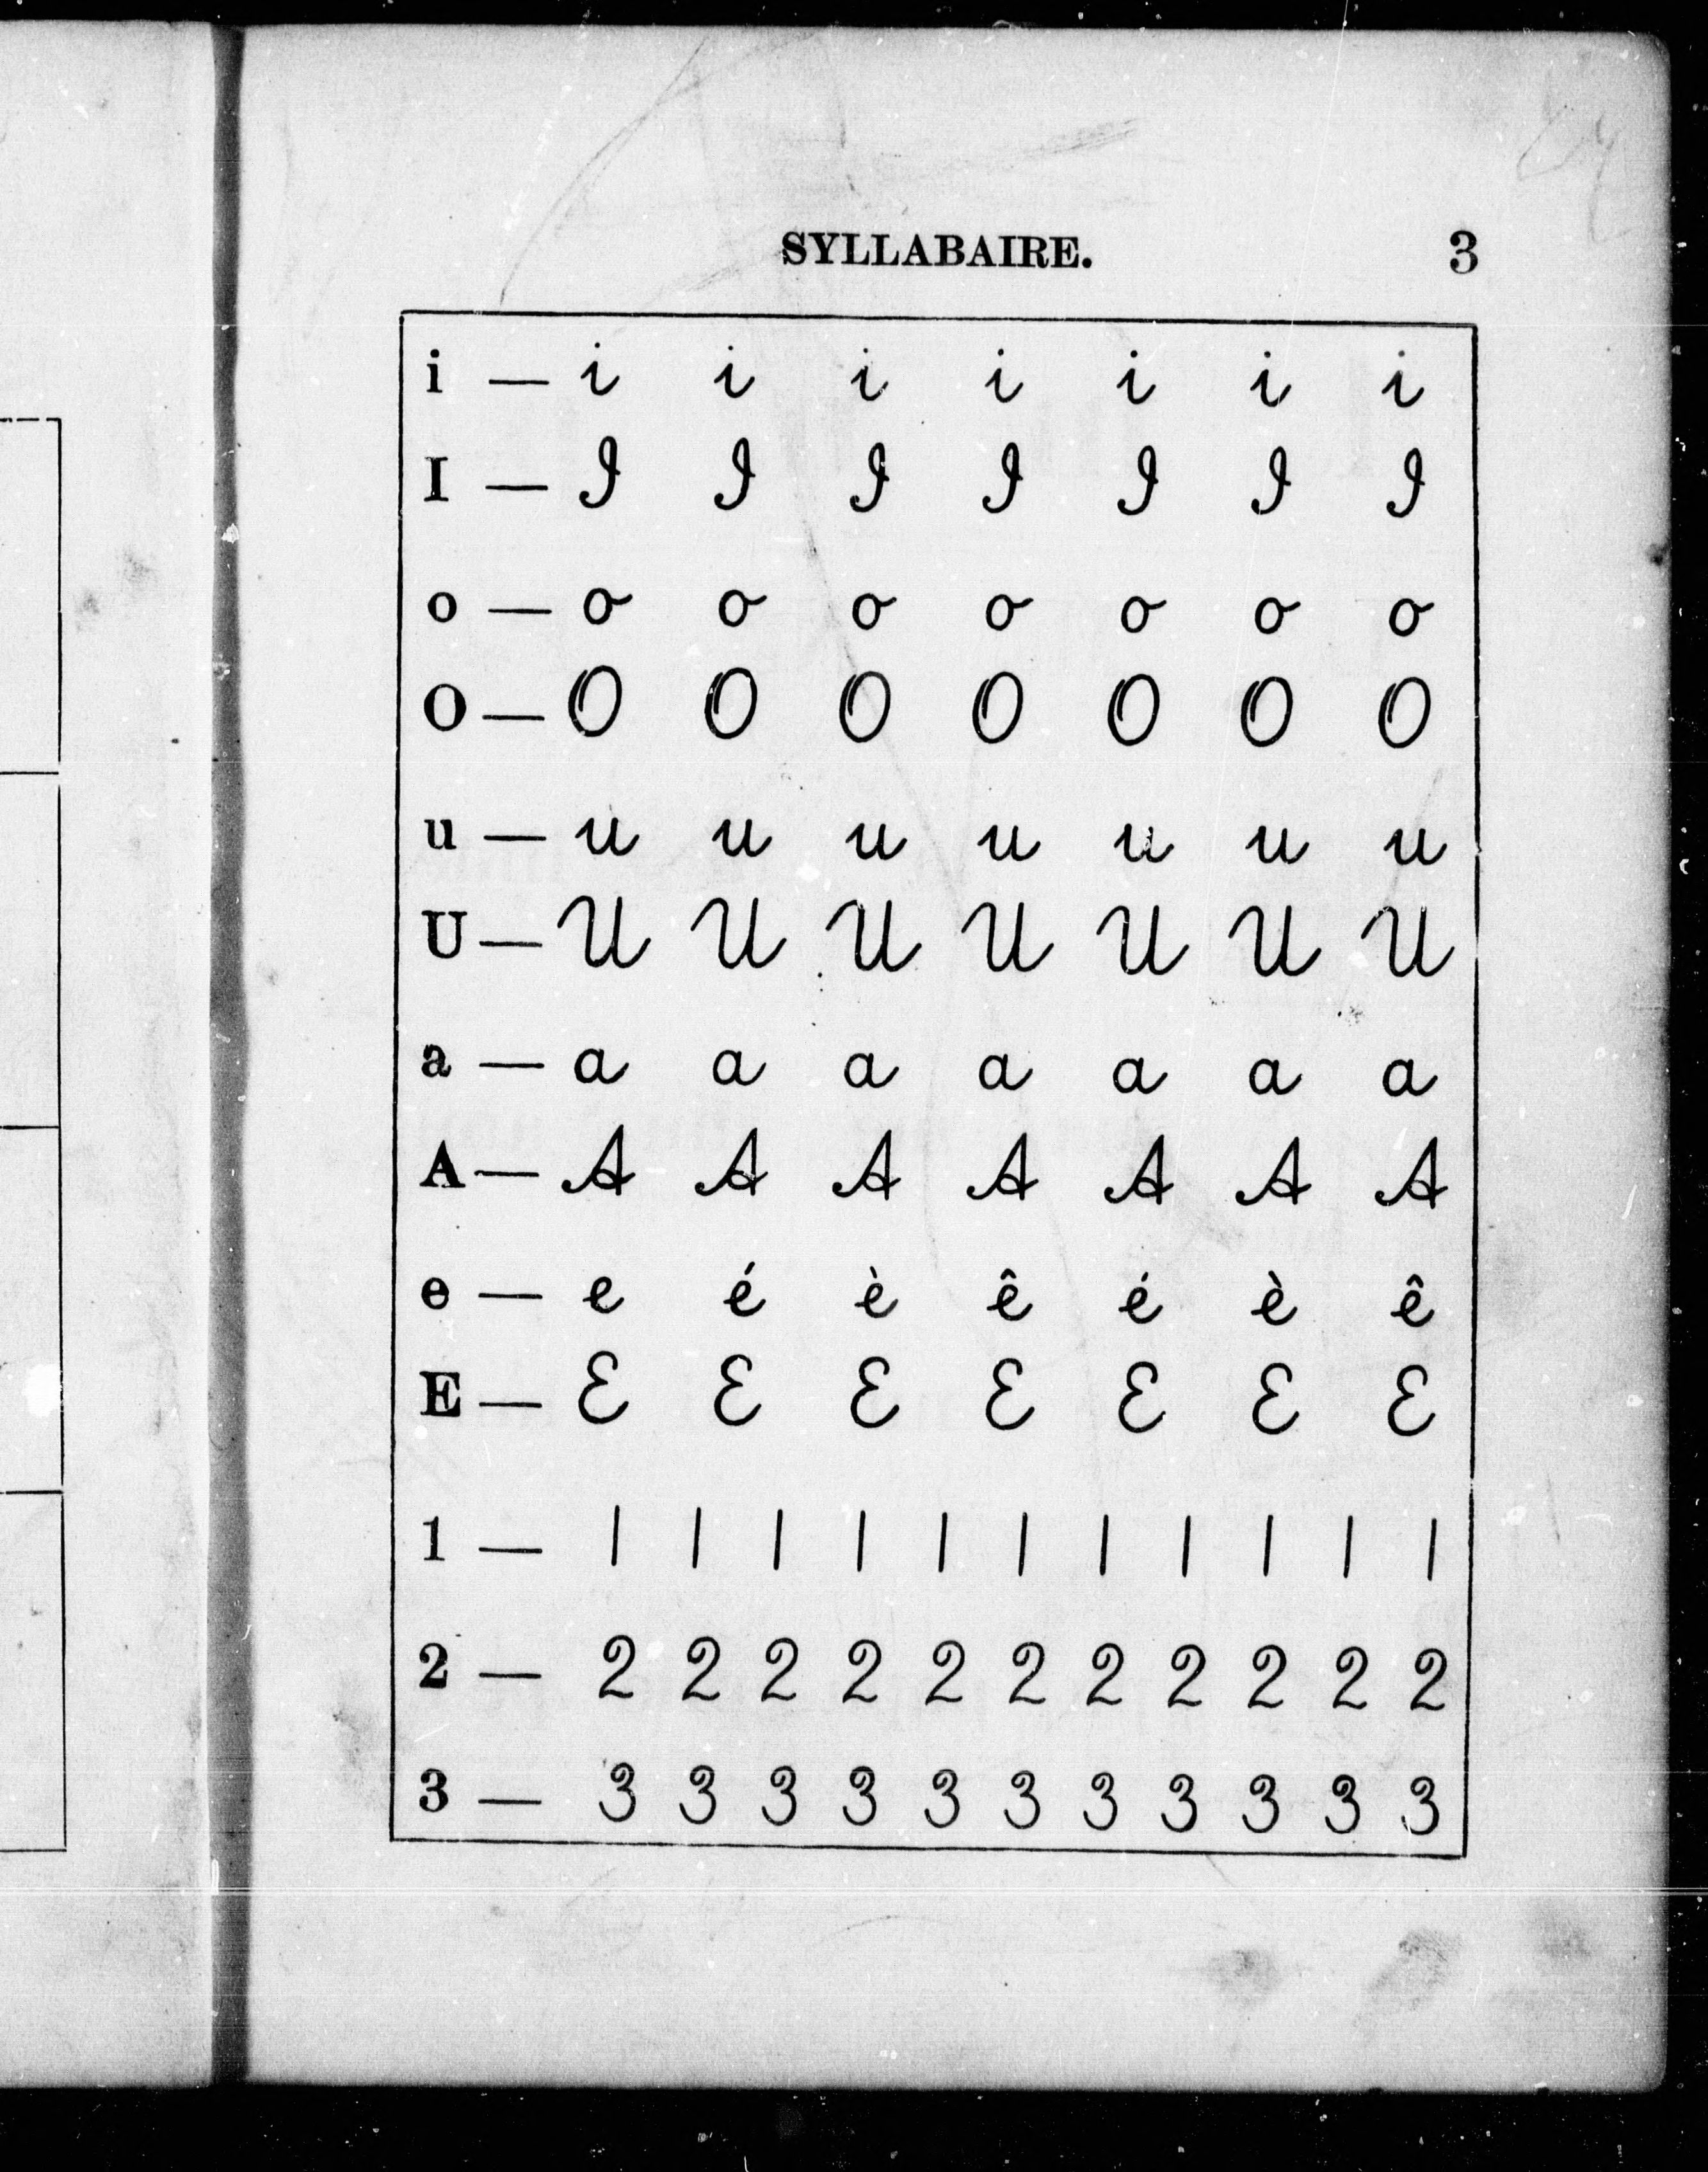 SYLLABAIRE. 3
i — i i i i i i i
I — I I I I I I I
o — o o o o o o o
O — O O O O O O O
u — u u u u u u u
U — U U U U U U U
a — a a a a a a a
A — A A A A A A A
e — e é è ê é è ê
E — E E E E E E E
1 — 1 1 1 1 1 1 1 1 1 1 1
2 — 2 2 2 2 2 2 2 2 2 2 2
3 — 3 3 3 3 3 3 3 3 3 3 3